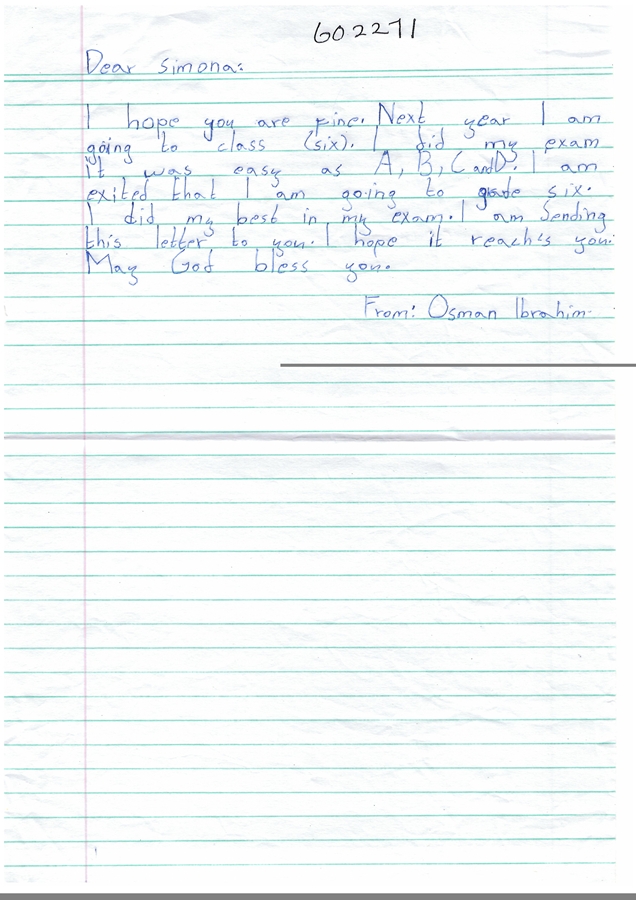 602271
Dear Simona:
I hope you are fine. Next year I am
going to class (six). I did my exam
it was easy as A, B, C and D! I am
exited that I am going to grade six.
I did my best in my exam. I am Sending
this letter to you. I hope it reach's you.
May God bless you.
From: Osman Ibrahim.